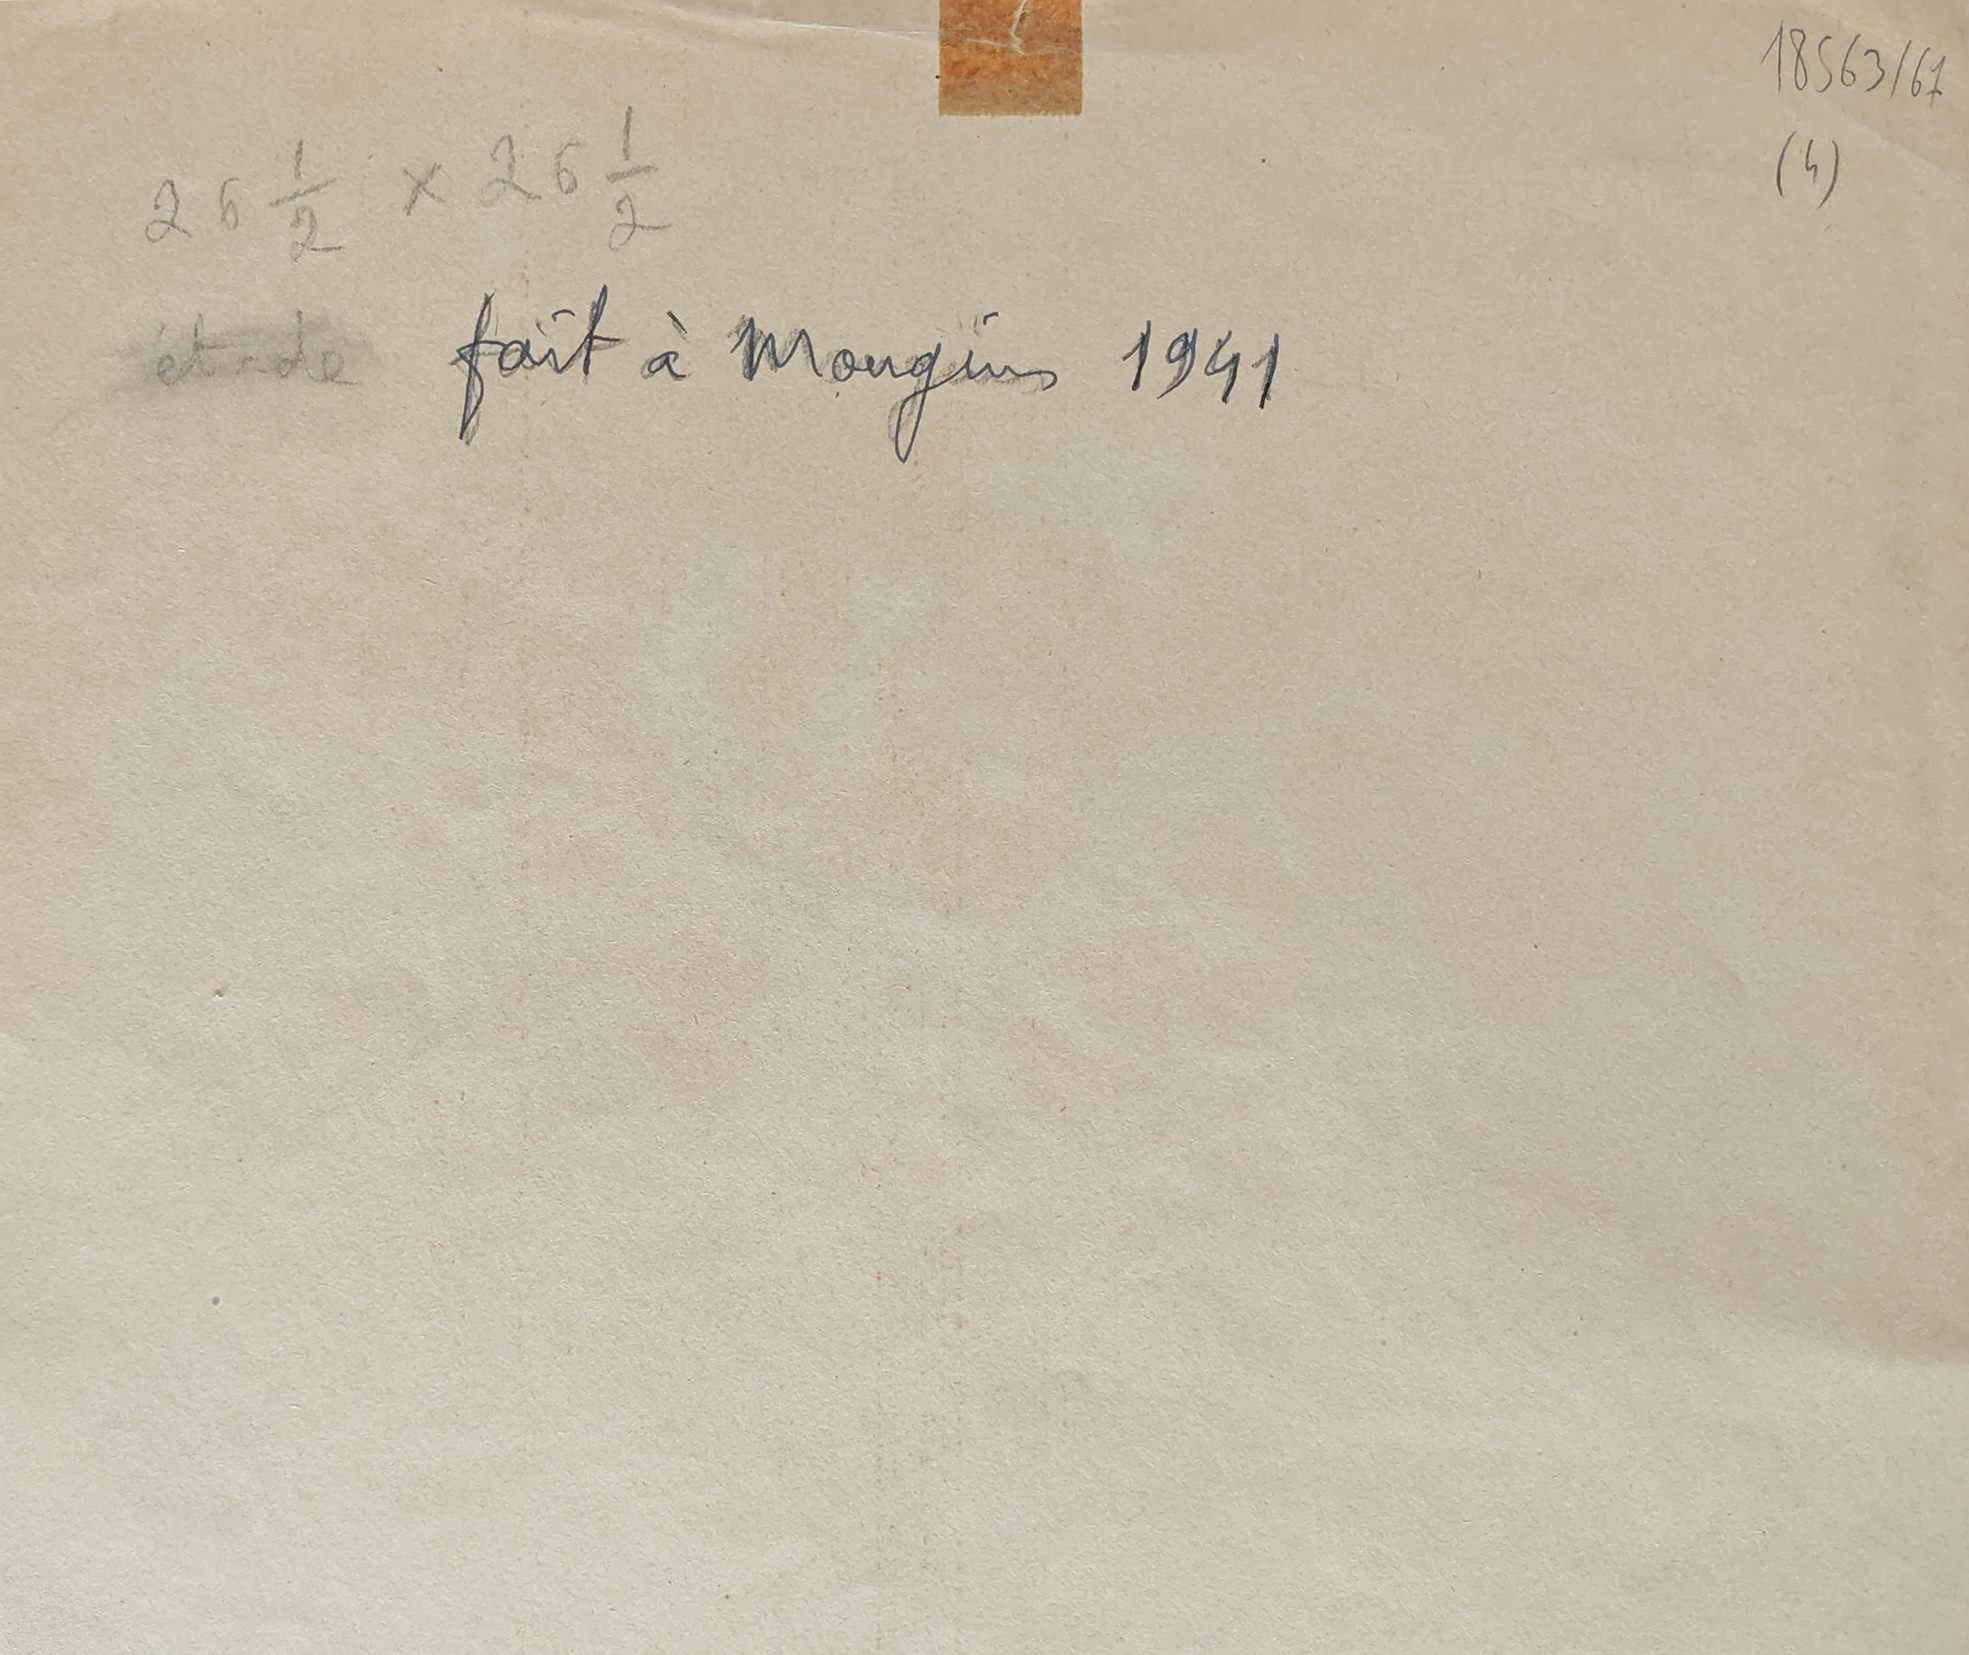 18563/67
(4)
26 1/2 x 26 1/2
étude fait à Mougins 1941